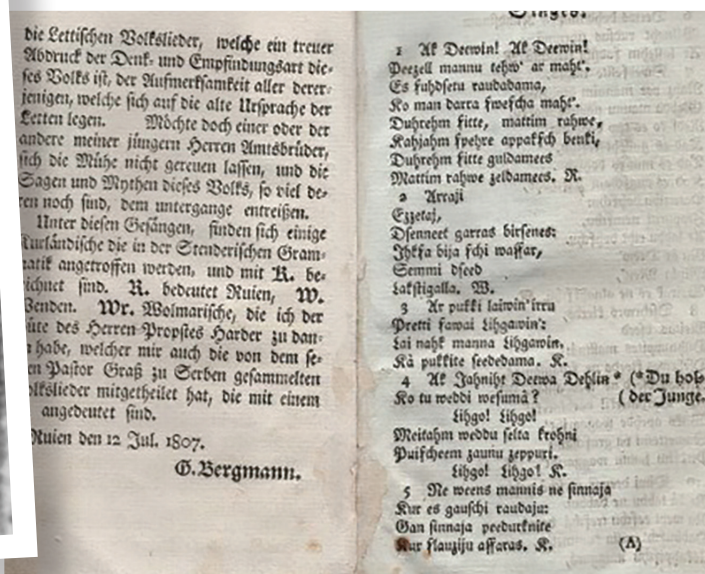 die Lettischen Volkslieder, welche ein treuer
Abdruck der Denk- und Empfindungsart die-
ses Volks ist, der Aufmerksamkeit aller derer-
jenigen, welche sich auf die alte Ursprache der
Letten legen. Möchte doch einer oder der
andere meiner jüngern Herren Amtsbrüder,
sich die Mühe nicht gereuen lassen, und die
Sagen und Mythen dieses Volks, so viel de-
ren noch sind, dem untergange entreißen.
Unter diesen Gesängen, finden sich einige
Kurländische die in der Stenderischen Gram-
matik angetroffen werden, und mit K. be-
ichnet sind. R. bedeutet Ruien, W.
Wenden. Wr. Wolmarische, die ich der
üte des Herren Propstes Harder zu dan-
n habe, welcher mir auch die von dem se-
en Pastor Graß zu Serben gesammelten
olkslieder mitgetheilet hat, die mit einem
angedeutet sind.
Ruien den 12 Jul. 1807.
G. Bergmann.
1 Ak Deewin! Ak Deewin!
Peezell mannu tehw' ar maht'.
Es suhdsetu raudadama,
Ko man darra swescha maht'.
Duhrehm sitte, mattim rahwe,
Kahjahm spehre appaksch benki,
Duhrehm sitte guldamees
Mattim rahwe zeldamees. R.
2 Arraji
Ezzetaj,
Dsenneet garras birsenes:
Ihksa bija schi wassar,
Semmi dseed
Lakstigalla. W.
3 Ar pukki laiwin' irru
Pretti sawai Lihgawin':
Lai nahk manna Lihgawin,
Kà pukkite seededama. K.
4 Ak Jahniht Deewa Dehlin * (* Du hol-
Ko tu weddi wesumâ? ( der Junge.
Lihgo! Lihgo!
Meitahm weddu selta krohni
Puischeem zaunu zeppuri.
Lihgo! Lihgo! K.
5 Ne weens mannis ne sinnaja
Kur es gauschi raudaju:
Gan sinnaja peedurknite
Kur slauziju assaras. K. (A)